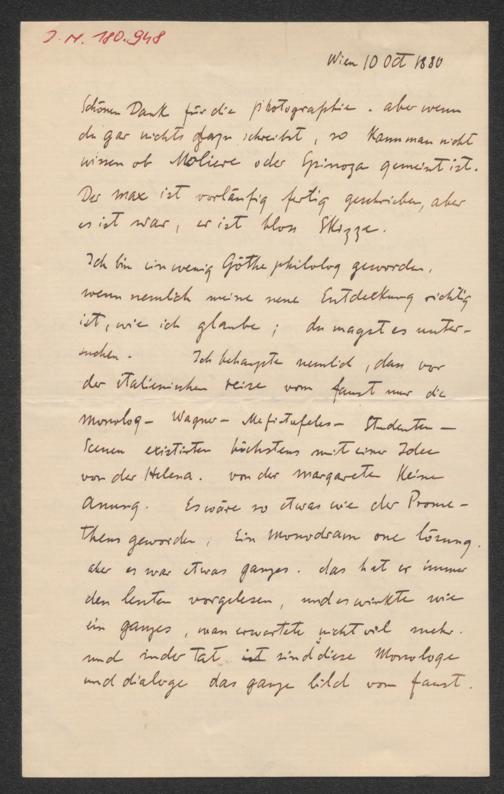 J. N. 180.948
Wien 10 Oct 1880
Schönen Dank für die photographie. aber wenn
du gar nichts dazu schreibst, so kann man nicht
wissen ob Moliere oder Spinoza gemeint ist.
Der Max ist vorläufig fertig geschrieben, aber
es ist war, er ist blos Skizze.
Ich bin ein wenig Göthe philolog geworden,
wenn nemlich meine neue Entdeckung richtig
ist, wie ich glaube; du magst es unter-
suchen. Ich behaupte nemlich, dass vor
der italienischen reise vom faust nur die
Monolog- Wagner- Mefistofeles- Studenten-
Scenen existirten höchstens mit einer Idee
von der Helena. von der Margarete keine
Anung. Es wäre so etwas wie der Prome-
theus geworden, Ein Monodram one lösung.
aber es war etwas ganzes. das hat er immer
den leuten vorgelesen, und es wirkte wie
ein ganzes, man erwartete nicht vil mehr.
und in der Tat sind diese Monologe
und dialoge das ganze bild vom faust.